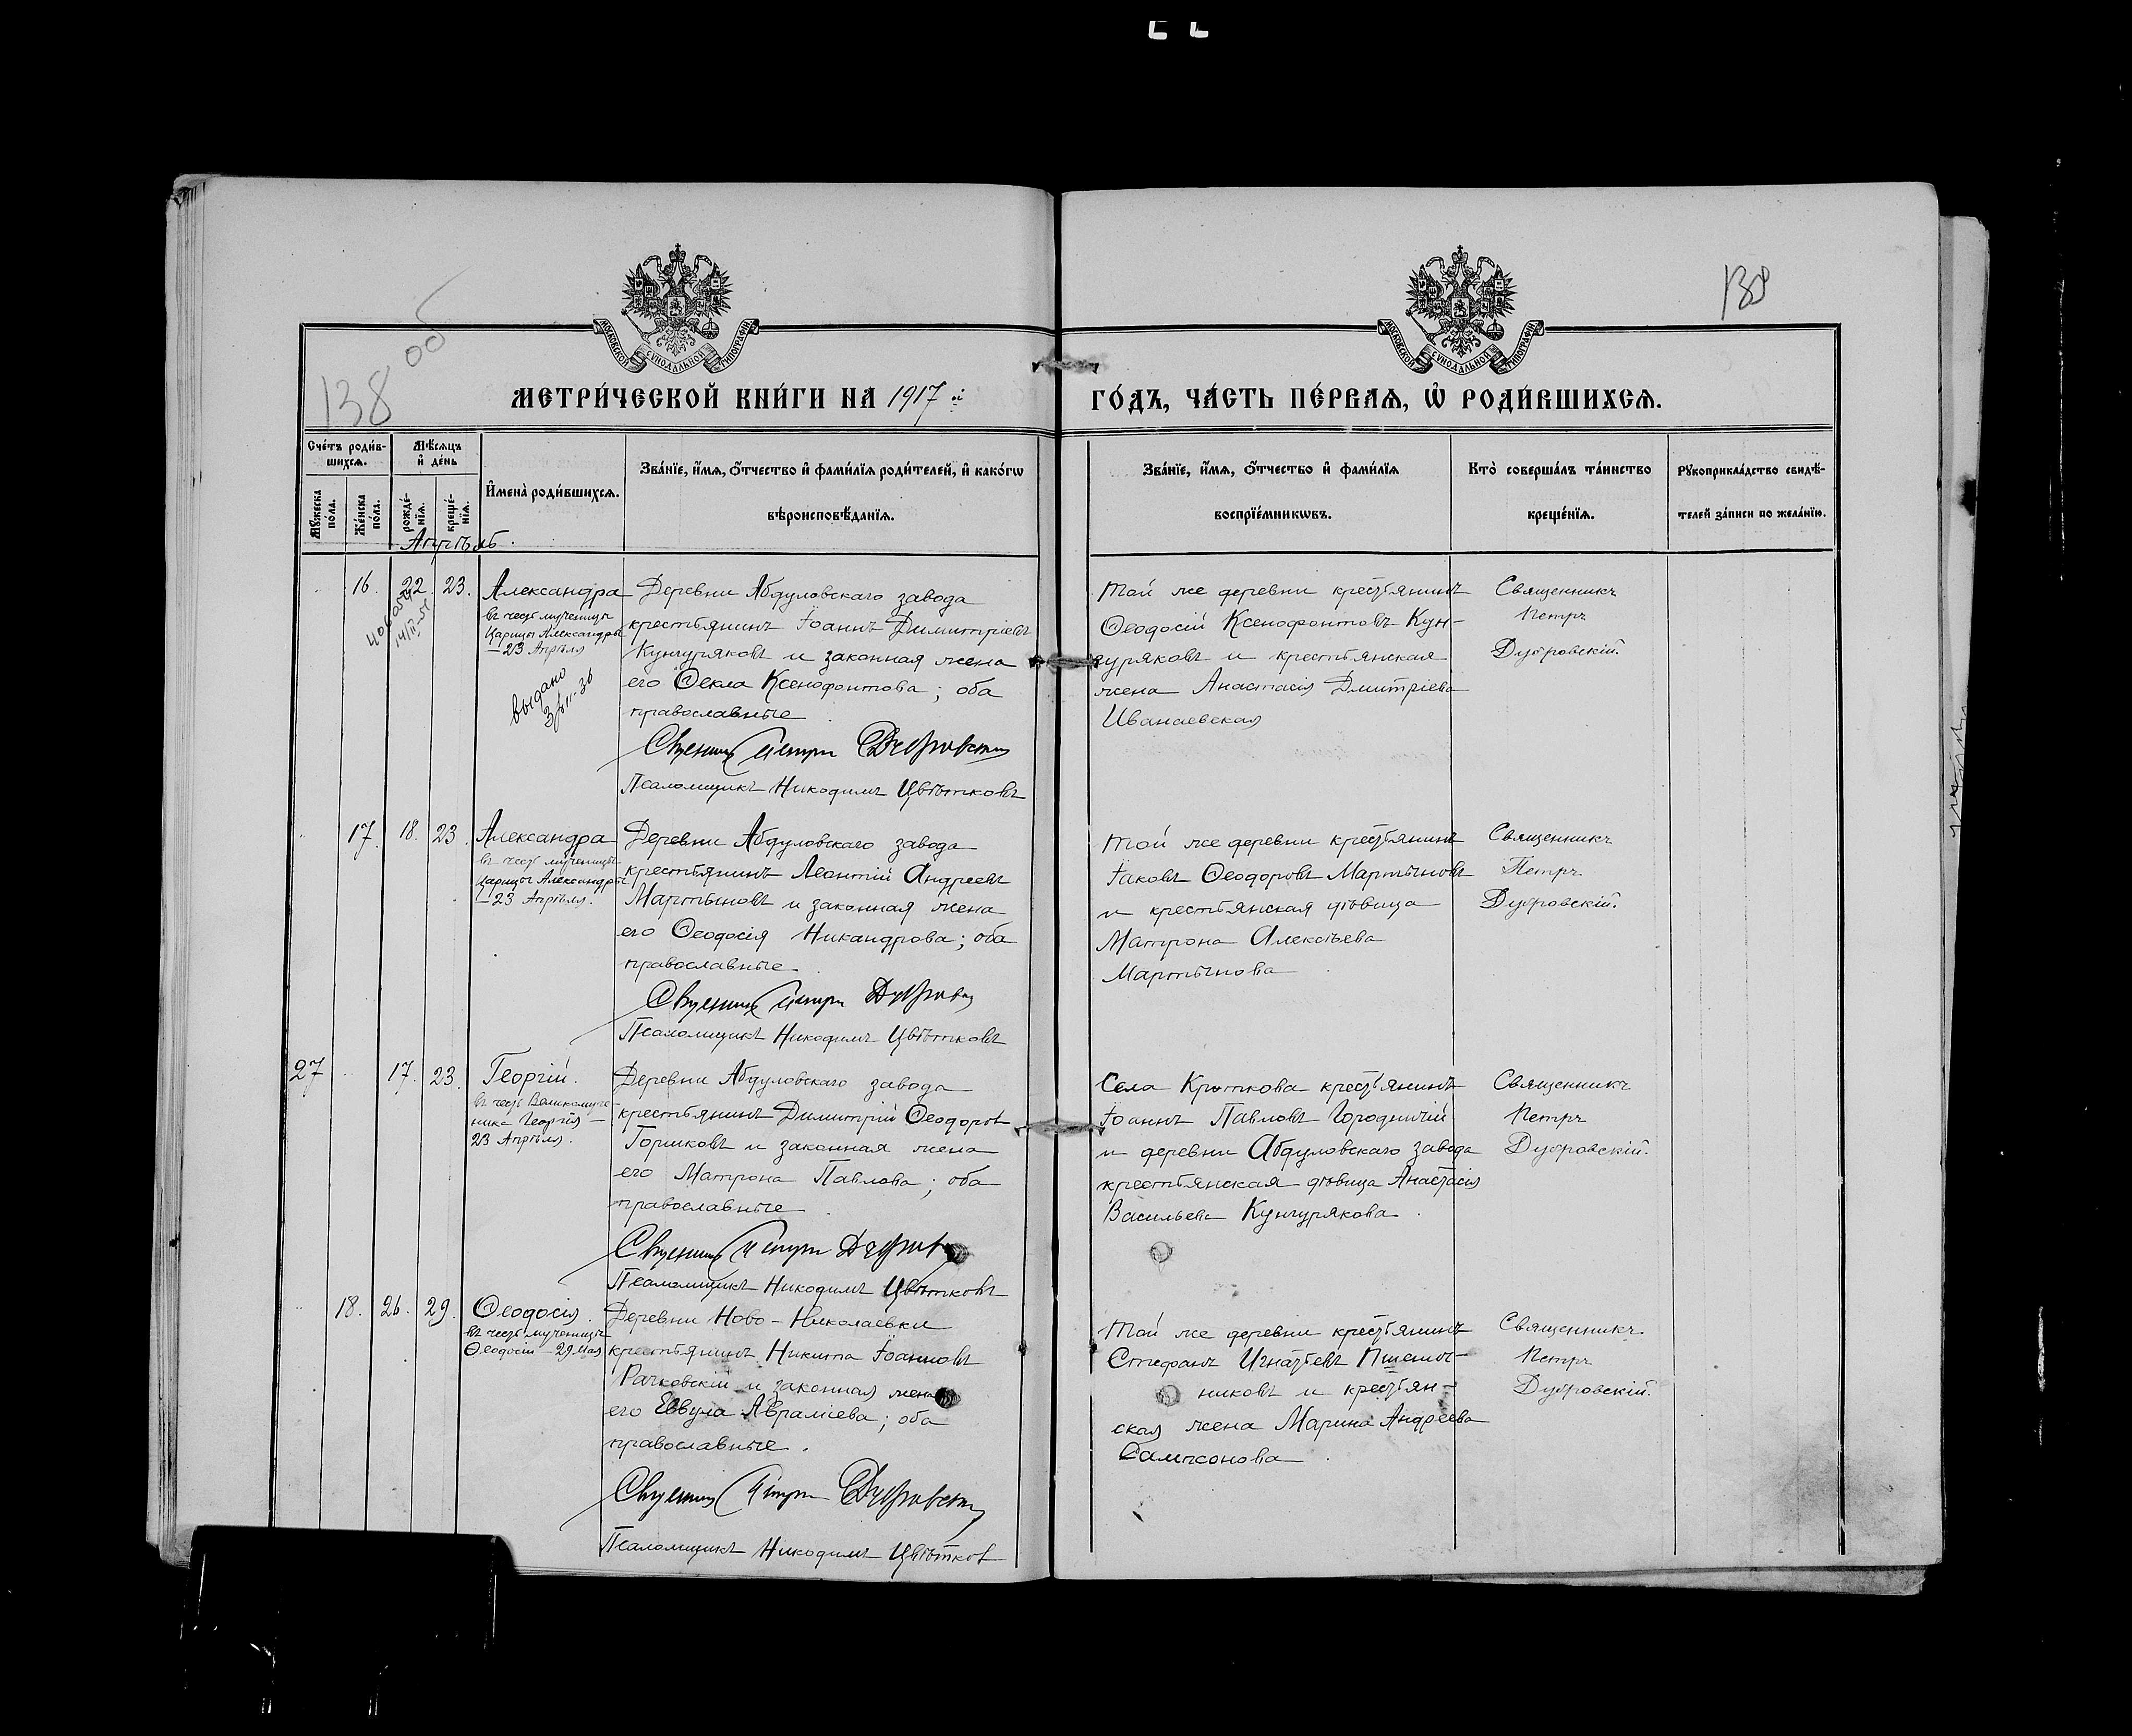 138 об
138
МОСКОВСКОЙ СѴНОДАЛЬНОЙ ТИПОГРАФІИ
МОСКОВСКОЙ СѴНОДАЛЬНОЙ ТИПОГРАФІИ
МЕТРИ́ЧЕСКОЙ КНИ́ГИ НА 1917 й
ГО́ДЪ, ЧА́СТЬ ПЕ́РВАѦ, Ѡ҆ РОДИ́ВШИХСѦ.
Сче́тъ роди́в-
шихсѧ.
Мѣ́сѧцъ
и҆ де́нь
Мꙋ́жеска
по́ла.
Же́нска
по́ла.
рожде́-
нїѧ.
креще́-
нїѧ.
И҆мена̀ роди́вшихсѧ.
Зва́нїе, и҆́мѧ, ѻ҆́тчество и҆ фами́лїѧ роди́телей, и҆ како́гѡ
вѣроисповѣ́данїѧ.
Зва́нїе, и҆́мѧ, ѻ҆́тчество и҆ фами́лїѧ
воспрїе́мникѡвъ.
Кто̀ соверша́лъ та́инство
креще́нїѧ.
Рꙋкоприкла́дство свидѣ́-
телей за́писи по жела́нїю.
Апрѣль.
16. 22. 23.
Александра
въ честь мученицы
Царицы Александры
— 23 Апрѣля
выдано
Деревни Абдуловскаго завода
крестьянинъ Іоаннъ Димитріевъ
Кунчуряковъ и законная жена
его Ѳекла Ксенофонтова; оба
православные
Священникъ Петръ Дубровскій
Псаломщикъ Никодимъ Цвѣтковъ
Той же деревни крестьянинъ
Ѳеодосій Ксенофонтовъ Кун-
чуряковъ и крестьянская
жена Анастасія Дмитріева
Иванаевская
Священникъ
Петръ
Дубровскій.
17. 18. 23.
Александра
въ честь мученицы
Царицы Александры
— 23 Апрѣля.
Деревни Абдуловскаго завода
крестьянинъ Леонтій Андреевъ
Мартыновъ и законная жена
его Ѳеодосія Никандрова; оба
православные
Священникъ Петръ Дубровскій
Псаломщикъ Никодимъ Цвѣтковъ
Той же деревни крестьянинъ
Іаковъ Ѳеодоровъ Мартыновъ
и крестьянская дѣвица
Матрона Алексѣева
Мартынова
Священникъ
Петръ
Дубровскій.
27 17. 23.
Георгій.
въ честь Великомуче-
ника Георгія —
23 Апрѣля.
Деревни Абдуловскаго завода
крестьянинъ Димитрій Ѳеодоровъ
Горшковъ и законная жена
его Матрона Павлова; оба
православные
Священникъ Петръ Дубровскій
Псаломщикъ Никодимъ Цвѣтковъ
Села Крюткова крестьянинъ
Іоаннъ Павловъ Городничій
и деревни Абдуловскаго завода
крестьянская дѣвица Анастасія
Васильева Кунчурякова.
Священникъ
Петръ
Дубровскій.
18. 26. 29.
Ѳеодосія.
въ честь мученицы
Ѳеодосіи — 29 Мая
Деревни Ново-Николаевки
крестьянинъ Никита Іоанновъ
Рачковскій и законная жена
его Еввула Авраміева; оба
православные.
Священникъ Петръ Дубровскій
Псаломщикъ Никодимъ Цвѣтковъ
Той же деревни крестьянинъ
Стефанъ Игнатьевъ Пшенич-
никовъ и крестьян-
ская жена Марина Андреева
Сампсонова
Священникъ
Петръ
Дубровскій.